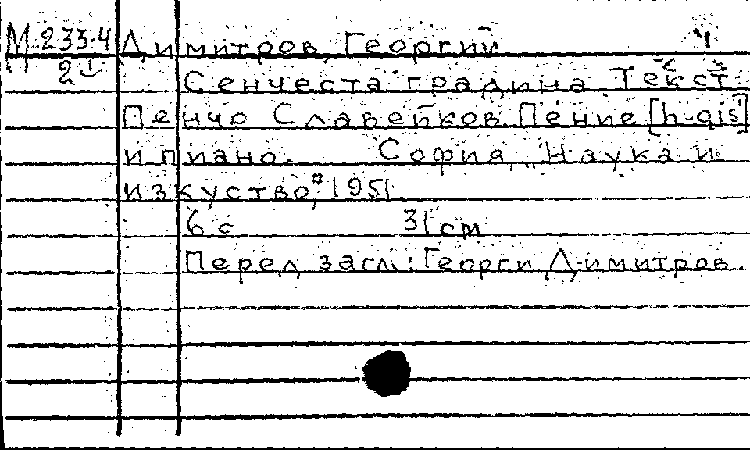 М 233.4 Димитров, Георгий
2 Сенчеста градина. Текст
Пенчо Славейков. Пение [h-gis]
и пиано. София, Наука и
изкуство, 1951.
6 с 31 см
Перед загл.: Георги Димитров.